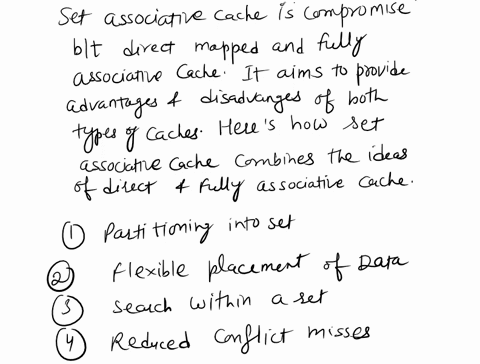 Set associative cache is compromise
b/t direct mapped and fully
associative Cache. It aims to provide
advantages & disadvanges of both
types of Caches. Here's how set
associative cache Combines the ideas
of direct & fully associative cache.
① Partitioning into set
② flexible placement of Data
③ search within a set
④ Reduced Conflict misses